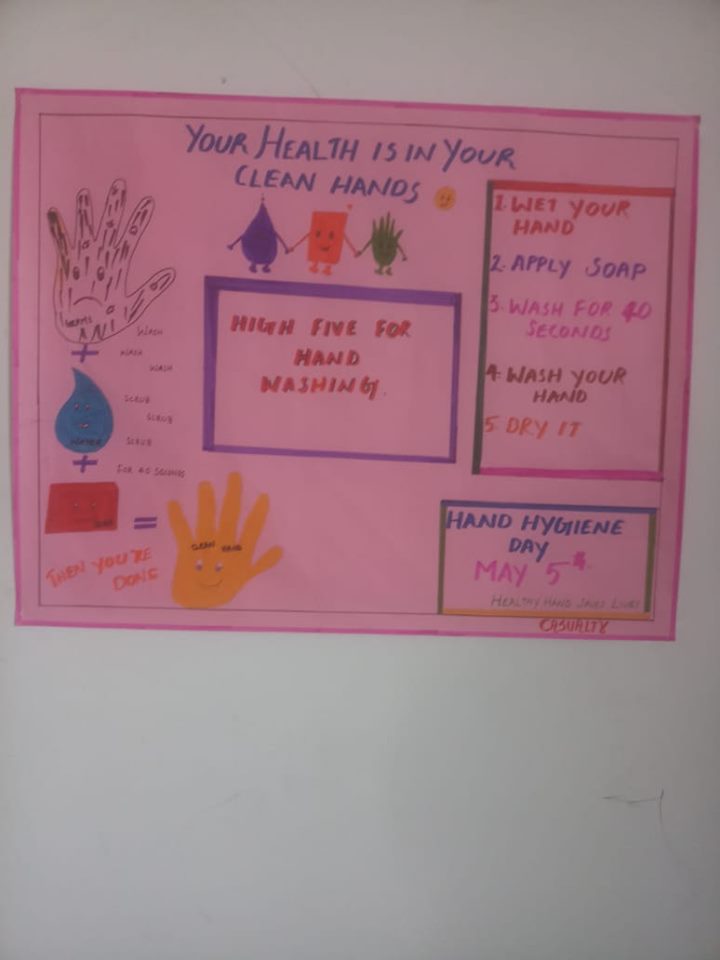 YOUR HEALTH IS IN YOUR
CLEAN HANDS
GERMS
WASH
WASH
WASH
WATER
SCRUB
SCRUB
SCRUB
FOR 40 SECONDS
CLEAN HAND
THEN YOU'RE
DONE
HIGH FIVE FOR
HAND
WASHING
1. WET YOUR
HAND
2. APPLY SOAP
3. WASH FOR 40
SECONDS
4. WASH YOUR
HAND
5. DRY IT
HAND HYGIENE
DAY
MAY 5th
HEALTHY HAND SAVES LIVES
CASUALTY